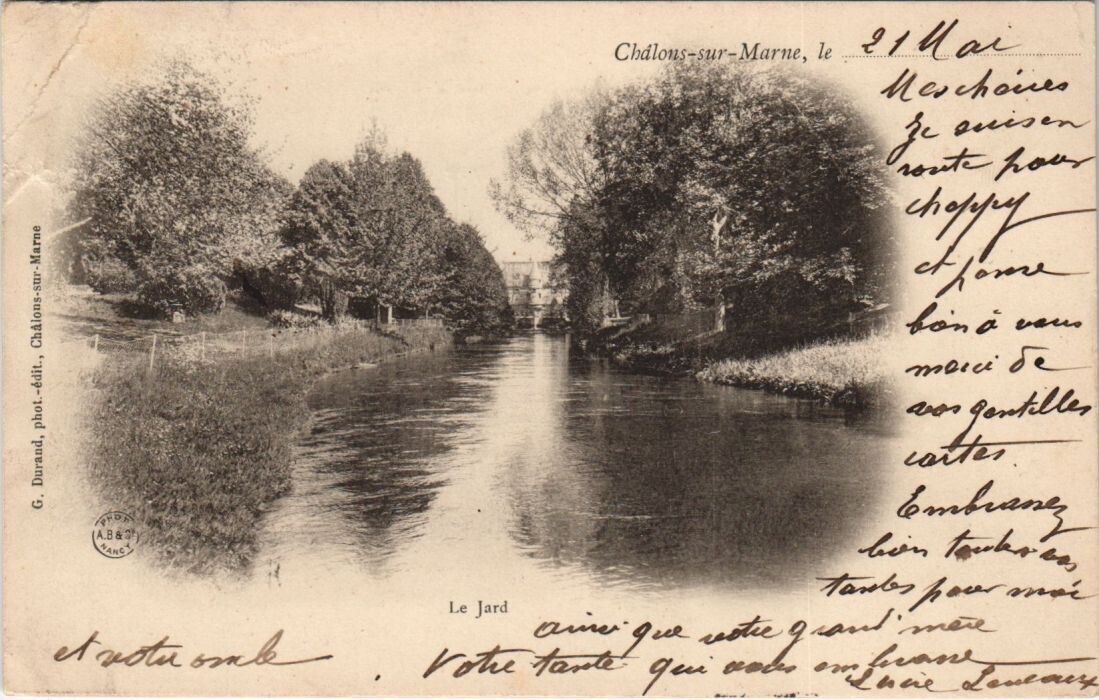 Châlons-sur-Marne, le 21 Mai
Mes chéries
Je suis en
route pour
choppy
et pense
bien à vous
merci de
vos gentilles
cartes
Embrassez
bien toutes vos
tantes pour moi
ainsi que votre grand' mère
et votre oncle
Votre tante qui vous embrasse
Lucie
Le Jard
G. Durand, phot.-édit., Châlons-sur-Marne
PHOT
A.B & Cie
NANCY